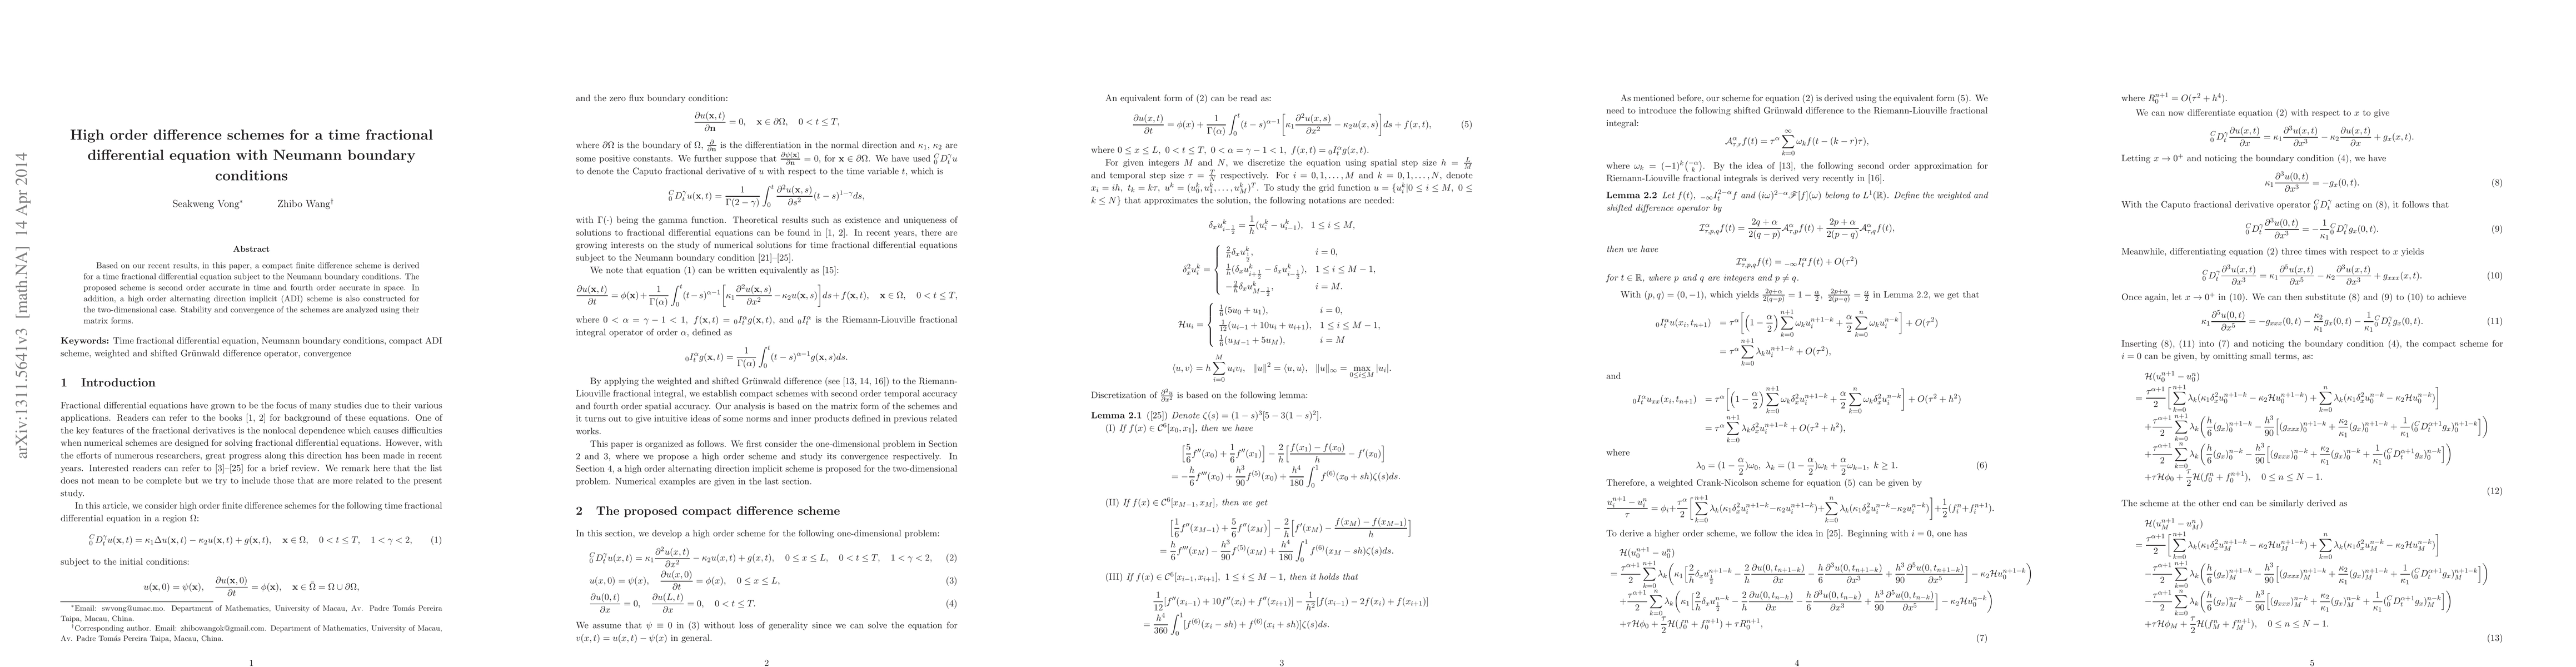 arXiv:1311.5641v3 [math.NA] 14 Apr 2014
High order difference schemes for a time fractional
differential equation with Neumann boundary
conditions
Seakweng Vong* Zhibo Wang†
Abstract
Based on our recent results, in this paper, a compact finite difference scheme is derived
for a time fractional differential equation subject to the Neumann boundary conditions. The
proposed scheme is second order accurate in time and fourth order accurate in space. In
addition, a high order alternating direction implicit (ADI) scheme is also constructed for
the two-dimensional case. Stability and convergence of the schemes are analyzed using their
matrix forms.
Keywords: Time fractional differential equation, Neumann boundary conditions, compact ADI
scheme, weighted and shifted Grünwald difference operator, convergence
1 Introduction
Fractional differential equations have grown to be the focus of many studies due to their various
applications. Readers can refer to the books [1, 2] for background of these equations. One of
the key features of the fractional derivatives is the nonlocal dependence which causes difficulties
when numerical schemes are designed for solving fractional differential equations. However, with
the efforts of numerous researchers, great progress along this direction has been made in recent
years. Interested readers can refer to [3]–[25] for a brief review. We remark here that the list
does not mean to be complete but we try to include those that are more related to the present
study.
In this article, we consider high order finite difference schemes for the following time fractional
differential equation in a region Ω:
${}_0^C D_t^\gamma u(\mathbf{x},t) = \kappa_1 \Delta u(\mathbf{x},t) - \kappa_2 u(\mathbf{x},t) + g(\mathbf{x},t), \quad \mathbf{x} \in \Omega, \quad 0 < t \le T, \quad 1 < \gamma < 2,$ (1)
subject to the initial conditions:
$u(\mathbf{x},0) = \psi(\mathbf{x}), \quad \frac{\partial u(\mathbf{x},0)}{\partial t} = \phi(\mathbf{x}), \quad \mathbf{x} \in \bar{\Omega} = \Omega \cup \partial\Omega,$
*Email: swvong@umac.mo. Department of Mathematics, University of Macau, Av. Padre Tomás Pereira
Taipa, Macau, China.
†Corresponding author. Email: zhibowangok@gmail.com. Department of Mathematics, University of Macau,
Av. Padre Tomás Pereira Taipa, Macau, China.
1
and the zero flux boundary condition:
$\frac{\partial u(\mathbf{x},t)}{\partial \mathbf{n}} = 0, \quad \mathbf{x} \in \partial\Omega, \quad 0 < t \le T,$
where ∂Ω is the boundary of Ω, $\frac{\partial}{\partial \mathbf{n}}$ is the differentiation in the normal direction and κ₁, κ₂ are
some positive constants. We further suppose that $\frac{\partial \psi(\mathbf{x})}{\partial \mathbf{n}} = 0$, for x ∈ ∂Ω. We have used ${}_0^C D_t^\gamma u$
to denote the Caputo fractional derivative of u with respect to the time variable t, which is
${}_0^C D_t^\gamma u(\mathbf{x},t) = \frac{1}{\Gamma(2-\gamma)} \int_0^t \frac{\partial^2 u(\mathbf{x},s)}{\partial s^2} (t-s)^{1-\gamma} ds,$
with Γ(·) being the gamma function. Theoretical results such as existence and uniqueness of
solutions to fractional differential equations can be found in [1, 2]. In recent years, there are
growing interests on the study of numerical solutions for time fractional differential equations
subject to the Neumann boundary condition [21]–[25].
We note that equation (1) can be written equivalently as [15]:
$\frac{\partial u(\mathbf{x},t)}{\partial t} = \phi(\mathbf{x}) + \frac{1}{\Gamma(\alpha)} \int_0^t (t-s)^{\alpha-1} \left[\kappa_1 \frac{\partial^2 u(\mathbf{x},s)}{\partial x^2} - \kappa_2 u(\mathbf{x},s)\right] ds + f(\mathbf{x},t), \quad \mathbf{x} \in \Omega, \quad 0 < t \le T,$
where 0 < α = γ − 1 < 1, $f(\mathbf{x},t) = {}_0I_t^\alpha g(\mathbf{x},t)$, and ${}_0I_t^\alpha$ is the Riemann-Liouville fractional
integral operator of order α, defined as
${}_0I_t^\alpha g(\mathbf{x},t) = \frac{1}{\Gamma(\alpha)} \int_0^t (t-s)^{\alpha-1} g(\mathbf{x},s) ds.$
By applying the weighted and shifted Grünwald difference (see [13, 14, 16]) to the Riemann-
Liouville fractional integral, we establish compact schemes with second order temporal accuracy
and fourth order spatial accuracy. Our analysis is based on the matrix form of the schemes and
it turns out to give intuitive ideas of some norms and inner products defined in previous related
works.
This paper is organized as follows. We first consider the one-dimensional problem in Section
2 and 3, where we propose a high order scheme and study its convergence respectively. In
Section 4, a high order alternating direction implicit scheme is proposed for the two-dimensional
problem. Numerical examples are given in the last section.
2 The proposed compact difference scheme
In this section, we develop a high order scheme for the following one-dimensional problem:
${}_0^C D_t^\gamma u(x,t) = \kappa_1 \frac{\partial^2 u(x,t)}{\partial x^2} - \kappa_2 u(x,t) + g(x,t), \quad 0 \le x \le L, \quad 0 < t \le T, \quad 1 < \gamma < 2,$ (2)
$u(x,0) = \psi(x), \quad \frac{\partial u(x,0)}{\partial t} = \phi(x), \quad 0 \le x \le L,$ (3)
$\frac{\partial u(0,t)}{\partial x} = 0, \quad \frac{\partial u(L,t)}{\partial x} = 0, \quad 0 < t \le T.$ (4)
We assume that ψ ≡ 0 in (3) without loss of generality since we can solve the equation for
v(x, t) = u(x, t) − ψ(x) in general.
2
An equivalent form of (2) can be read as:
$\frac{\partial u(x,t)}{\partial t} = \phi(x) + \frac{1}{\Gamma(\alpha)} \int_0^t (t-s)^{\alpha-1} \left[\kappa_1 \frac{\partial^2 u(x,s)}{\partial x^2} - \kappa_2 u(x,s)\right] ds + f(x,t),$ (5)
where 0 ≤ x ≤ L, 0 < t ≤ T, 0 < α = γ − 1 < 1, $f(x,t) = {}_0I_t^\alpha g(x,t)$.
For given integers M and N, we discretize the equation using spatial step size $h = \frac{L}{M}$
and temporal step size $\tau = \frac{T}{N}$ respectively. For i = 0, 1, . . . , M and k = 0, 1, . . . , N, denote
$x_i = ih$, $t_k = k\tau$, $u^k = (u_0^k, u_1^k, \ldots, u_M^k)^T$. To study the grid function $u = \{u_i^k | 0 \le i \le M, \ 0 \le$
$k \le N\}$ that approximates the solution, the following notations are needed:
$\delta_x u_{i-\frac12}^k = \frac{1}{h}(u_i^k - u_{i-1}^k), \quad 1 \le i \le M,$
$\delta_x^2 u_i^k = \begin{cases} \frac{2}{h}\delta_x u_{\frac12}^k, & i = 0, \\ \frac{1}{h}(\delta_x u_{i+\frac12}^k - \delta_x u_{i-\frac12}^k), & 1 \le i \le M-1, \\ -\frac{2}{h}\delta_x u_{M-\frac12}^k, & i = M. \end{cases}$
$\mathcal{H}u_i = \begin{cases} \frac{1}{6}(5u_0 + u_1), & i = 0, \\ \frac{1}{12}(u_{i-1} + 10u_i + u_{i+1}), & 1 \le i \le M-1, \\ \frac{1}{6}(u_{M-1} + 5u_M), & i = M \end{cases}$
$\langle u,v\rangle = h \sum_{i=0}^M u_i v_i, \quad \|u\|^2 = \langle u,u\rangle, \quad \|u\|_\infty = \max_{0\le i\le M} |u_i|.$
Discretization of $\frac{\partial^2 u}{\partial x^2}$ is based on the following lemma:
Lemma 2.1 ([25]) Denote $\zeta(s) = (1-s)^3[5 - 3(1-s)^2]$.
(I) If $f(x) \in \mathcal{C}^6[x_0, x_1]$, then we have
$\left[\frac56 f''(x_0) + \frac16 f''(x_1)\right] - \frac{2}{h}\left[\frac{f(x_1)-f(x_0)}{h} - f'(x_0)\right]$
$= -\frac{h}{6}f'''(x_0) + \frac{h^3}{90}f^{(5)}(x_0) + \frac{h^4}{180}\int_0^1 f^{(6)}(x_0+sh)\zeta(s)ds.$
(II) If $f(x) \in \mathcal{C}^6[x_{M-1}, x_M]$, then we get
$\left[\frac16 f''(x_{M-1}) + \frac56 f''(x_M)\right] - \frac{2}{h}\left[f'(x_M) - \frac{f(x_M)-f(x_{M-1})}{h}\right]$
$= \frac{h}{6}f'''(x_M) - \frac{h^3}{90}f^{(5)}(x_M) + \frac{h^4}{180}\int_0^1 f^{(6)}(x_M-sh)\zeta(s)ds.$
(III) If $f(x) \in \mathcal{C}^6[x_{i-1}, x_{i+1}]$, $1 \le i \le M-1$, then it holds that
$\frac{1}{12}[f''(x_{i-1}) + 10f''(x_i) + f''(x_{i+1})] - \frac{1}{h^2}[f(x_{i-1}) - 2f(x_i) + f(x_{i+1})]$
$= \frac{h^4}{360}\int_0^1 [f^{(6)}(x_i-sh) + f^{(6)}(x_i+sh)]\zeta(s)ds.$
3
As mentioned before, our scheme for equation (2) is derived using the equivalent form (5). We
need to introduce the following shifted Grünwald difference to the Riemann-Liouville fractional
integral:
$\mathcal{A}_{\tau,r}^\alpha f(t) = \tau^\alpha \sum_{k=0}^\infty \omega_k f(t-(k-r)\tau),$
where $\omega_k = (-1)^k \binom{-\alpha}{k}$. By the idea of [13], the following second order approximation for
Riemann-Liouville fractional integrals is derived very recently in [16].
Lemma 2.2 Let $f(t)$, ${}_{-\infty}I_t^{2-\alpha}f$ and $(i\omega)^{2-\alpha}\mathscr{F}[f](\omega)$ belong to $L^1(\mathbb{R})$. Define the weighted and
shifted difference operator by
$\mathcal{I}_{\tau,p,q}^\alpha f(t) = \frac{2q+\alpha}{2(q-p)}\mathcal{A}_{\tau,p}^\alpha f(t) + \frac{2p+\alpha}{2(p-q)}\mathcal{A}_{\tau,q}^\alpha f(t),$
then we have
$\mathcal{I}_{\tau,p,q}^\alpha f(t) = {}_{-\infty}I_t^\alpha f(t) + O(\tau^2)$
for t ∈ ℝ, where p and q are integers and p ≠ q.
With (p, q) = (0, −1), which yields $\frac{2q+\alpha}{2(q-p)} = 1 - \frac{\alpha}{2}$, $\frac{2p+\alpha}{2(p-q)} = \frac{\alpha}{2}$ in Lemma 2.2, we get that
${}_0I_t^\alpha u(x_i,t_{n+1}) = \tau^\alpha\left[\left(1-\frac{\alpha}{2}\right)\sum_{k=0}^{n+1}\omega_k u_i^{n+1-k} + \frac{\alpha}{2}\sum_{k=0}^n \omega_k u_i^{n-k}\right] + O(\tau^2)$
$= \tau^\alpha \sum_{k=0}^{n+1}\lambda_k u_i^{n+1-k} + O(\tau^2),$
and
${}_0I_t^\alpha u_{xx}(x_i,t_{n+1}) = \tau^\alpha\left[\left(1-\frac{\alpha}{2}\right)\sum_{k=0}^{n+1}\omega_k \delta_x^2 u_i^{n+1-k} + \frac{\alpha}{2}\sum_{k=0}^n \omega_k \delta_x^2 u_i^{n-k}\right] + O(\tau^2+h^2)$
$= \tau^\alpha \sum_{k=0}^{n+1}\lambda_k \delta_x^2 u_i^{n+1-k} + O(\tau^2+h^2),$
where
$\lambda_0 = (1-\frac{\alpha}{2})\omega_0, \ \lambda_k = (1-\frac{\alpha}{2})\omega_k + \frac{\alpha}{2}\omega_{k-1}, \ k \ge 1.$ (6)
Therefore, a weighted Crank-Nicolson scheme for equation (5) can be given by
$\frac{u_i^{n+1}-u_i^n}{\tau} = \phi_i + \frac{\tau^\alpha}{2}\left[\sum_{k=0}^{n+1}\lambda_k(\kappa_1\delta_x^2 u_i^{n+1-k} - \kappa_2 u_i^{n+1-k}) + \sum_{k=0}^n \lambda_k(\kappa_1\delta_x^2 u_i^{n-k} - \kappa_2 u_i^{n-k})\right] + \frac12(f_i^n + f_i^{n+1}).$
To derive a higher order scheme, we follow the idea in [25]. Beginning with i = 0, one has
$\mathcal{H}(u_0^{n+1} - u_0^n)$
$= \frac{\tau^{\alpha+1}}{2}\sum_{k=0}^{n+1}\lambda_k\left(\kappa_1\left[\frac{2}{h}\delta_x u_{\frac12}^{n+1-k} - \frac{2}{h}\frac{\partial u(0,t_{n+1-k})}{\partial x} - \frac{h}{6}\frac{\partial^3 u(0,t_{n+1-k})}{\partial x^3} + \frac{h^3}{90}\frac{\partial^5 u(0,t_{n+1-k})}{\partial x^5}\right] - \kappa_2\mathcal{H}u_0^{n+1-k}\right)$
$+ \frac{\tau^{\alpha+1}}{2}\sum_{k=0}^n\lambda_k\left(\kappa_1\left[\frac{2}{h}\delta_x u_{\frac12}^{n-k} - \frac{2}{h}\frac{\partial u(0,t_{n-k})}{\partial x} - \frac{h}{6}\frac{\partial^3 u(0,t_{n-k})}{\partial x^3} + \frac{h^3}{90}\frac{\partial^5 u(0,t_{n-k})}{\partial x^5}\right] - \kappa_2\mathcal{H}u_0^{n-k}\right)$
$+ \tau\mathcal{H}\phi_0 + \frac{\tau}{2}\mathcal{H}(f_0^n + f_0^{n+1}) + \tau R_0^{n+1},$
(7)
4
where $R_0^{n+1} = O(\tau^2+h^4)$.
We can now differentiate equation (2) with respect to x to give
${}_0^C D_t^\gamma \frac{\partial u(x,t)}{\partial x} = \kappa_1\frac{\partial^3 u(x,t)}{\partial x^3} - \kappa_2\frac{\partial u(x,t)}{\partial x} + g_x(x,t).$
Letting x → 0⁺ and noticing the boundary condition (4), we have
$\kappa_1\frac{\partial^3 u(0,t)}{\partial x^3} = -g_x(0,t).$ (8)
With the Caputo fractional derivative operator ${}_0^C D_t^\gamma$ acting on (8), it follows that
${}_0^C D_t^\gamma \frac{\partial^3 u(0,t)}{\partial x^3} = -\frac{1}{\kappa_1}{}_0^C D_t^\gamma g_x(0,t).$ (9)
Meanwhile, differentiating equation (2) three times with respect to x yields
${}_0^C D_t^\gamma \frac{\partial^3 u(x,t)}{\partial x^3} = \kappa_1\frac{\partial^5 u(x,t)}{\partial x^5} - \kappa_2\frac{\partial^3 u(x,t)}{\partial x^3} + g_{xxx}(x,t).$ (10)
Once again, let x → 0⁺ in (10). We can then substitute (8) and (9) to (10) to achieve
$\kappa_1\frac{\partial^5 u(0,t)}{\partial x^5} = -g_{xxx}(0,t) - \frac{\kappa_2}{\kappa_1}g_x(0,t) - \frac{1}{\kappa_1}{}_0^C D_t^\gamma g_x(0,t).$ (11)
Inserting (8), (11) into (7) and noticing the boundary condition (4), the compact scheme for
i = 0 can be given, by omitting small terms, as:
$\mathcal{H}(u_0^{n+1} - u_0^n)$
$= \frac{\tau^{\alpha+1}}{2}\left[\sum_{k=0}^{n+1}\lambda_k(\kappa_1\delta_x^2 u_0^{n+1-k} - \kappa_2\mathcal{H}u_0^{n+1-k}) + \sum_{k=0}^n\lambda_k(\kappa_1\delta_x^2 u_0^{n-k} - \kappa_2\mathcal{H}u_0^{n-k})\right]$
$+ \frac{\tau^{\alpha+1}}{2}\sum_{k=0}^{n+1}\lambda_k\left(\frac{h}{6}(g_x)_0^{n+1-k} - \frac{h^3}{90}\left[(g_{xxx})_0^{n+1-k} + \frac{\kappa_2}{\kappa_1}(g_x)_0^{n+1-k} + \frac{1}{\kappa_1}({}_0^C D_t^{\alpha+1}g_x)_0^{n+1-k}\right]\right)$
$+ \frac{\tau^{\alpha+1}}{2}\sum_{k=0}^n\lambda_k\left(\frac{h}{6}(g_x)_0^{n-k} - \frac{h^3}{90}\left[(g_{xxx})_0^{n-k} + \frac{\kappa_2}{\kappa_1}(g_x)_0^{n-k} + \frac{1}{\kappa_1}({}_0^C D_t^{\alpha+1}g_x)_0^{n-k}\right]\right)$
$+ \tau\mathcal{H}\phi_0 + \frac{\tau}{2}\mathcal{H}(f_0^n + f_0^{n+1}), \quad 0 \le n \le N-1.$
(12)
The scheme at the other end can be similarly derived as
$\mathcal{H}(u_M^{n+1} - u_M^n)$
$= \frac{\tau^{\alpha+1}}{2}\left[\sum_{k=0}^{n+1}\lambda_k(\kappa_1\delta_x^2 u_M^{n+1-k} - \kappa_2\mathcal{H}u_M^{n+1-k}) + \sum_{k=0}^n\lambda_k(\kappa_1\delta_x^2 u_M^{n-k} - \kappa_2\mathcal{H}u_M^{n-k})\right]$
$- \frac{\tau^{\alpha+1}}{2}\sum_{k=0}^{n+1}\lambda_k\left(\frac{h}{6}(g_x)_M^{n+1-k} - \frac{h^3}{90}\left[(g_{xxx})_M^{n+1-k} + \frac{\kappa_2}{\kappa_1}(g_x)_M^{n+1-k} + \frac{1}{\kappa_1}({}_0^C D_t^{\alpha+1}g_x)_M^{n+1-k}\right]\right)$
$- \frac{\tau^{\alpha+1}}{2}\sum_{k=0}^n\lambda_k\left(\frac{h}{6}(g_x)_M^{n-k} - \frac{h^3}{90}\left[(g_{xxx})_M^{n-k} + \frac{\kappa_2}{\kappa_1}(g_x)_M^{n-k} + \frac{1}{\kappa_1}({}_0^C D_t^{\alpha+1}g_x)_M^{n-k}\right]\right)$
$+ \tau\mathcal{H}\phi_M + \frac{\tau}{2}\mathcal{H}(f_M^n + f_M^{n+1}), \quad 0 \le n \le N-1.$
(13)
5